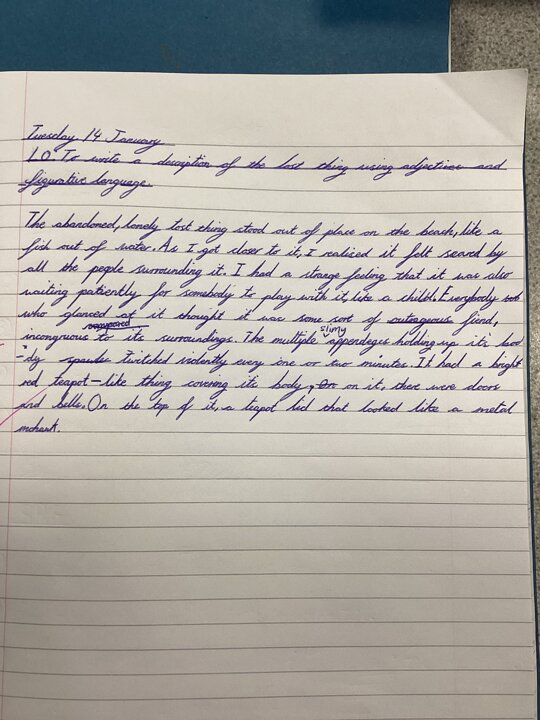 Tuesday 14 January
LO: To write a description of the lost thing using adjectives and
figurative language.
The abandoned, lonely lost thing stood out of place on the beach, like a
fish out of water. As I got closer to it, I realized it felt scared by
all the people surrounding it. I had a strange feeling that it was also
waiting patiently for somebody to play with it, like a child. Everybody
who glanced at it thought it was some sort of outrageous fiend,
incongruous to its surroundings. The multiple slimy appendeges holding up its bod
-dy twitched violently every one or two minutes. It had a bright
red teapot-like thing covering its body, on it, there were doors
and bells. On the top of it, a teapot lid that looked like a metal
mohawk.